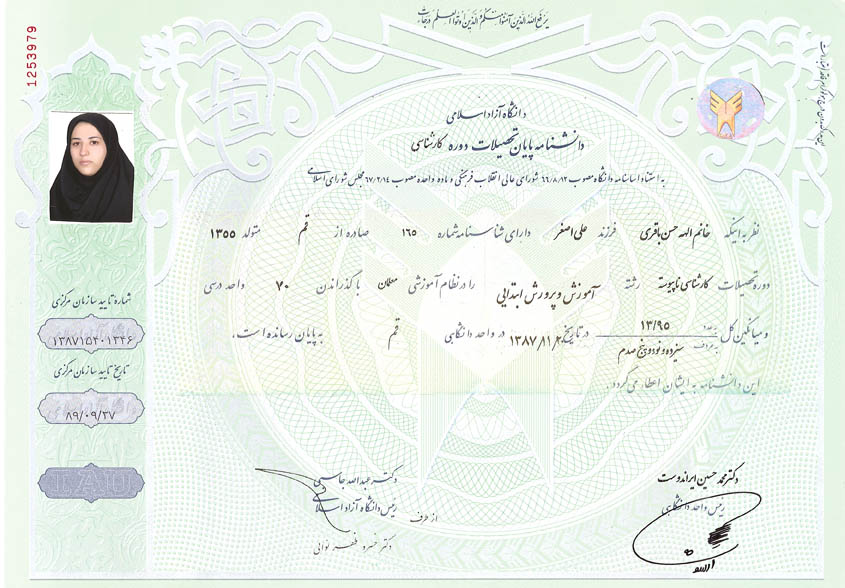 یرفع الله الذین آمنوا منکم والذین اوتوا العلم درجات
1253979
دانشگاه آزاد اسلامی
دانشنامه پایان تحصیلات دوره کارشناسی
به استناد اساسنامه دانشگاه مصوب ۶۶/۸/۱۲ شورای عالی انقلاب فرهنگی و ماده واحده مصوب ۶۷/۲/۱۴ مجلس شورای اسلامی
نظر به اینکه خانم الهه حسن باقری فرزند علی اصغر دارای شناسنامه شماره ۱۶۵ صادره از قم متولد ۱۳۵۵
دوره تحصیلات کارشناسی ناپیوسته رشته آموزش و پرورش ابتدایی را در نظام آموزشی معلمان با گذراندن ۷۰ واحد درسی
و میانگین کل به عدد ۱۳/۹۵ به حروف سیزده و نود و پنج صدم در تاریخ ۱۳۸۷/۱۱/ در واحد دانشگاهی قم به پایان رسانده است.
این دانشنامه به ایشان اعطا می گردد.
شماره تایید سازمان مرکزی
۱۳۸۷۱۵۴۰۱۳۴۶
تاریخ تایید سازمان مرکزی
۸۹/۰۹/۲۷
IAU
دکتر محمد حسین ایراندوست
رئیس واحد دانشگاهی
دکتر عبدالله جاسبی
رئیس دانشگاه آزاد اسلامی
از طرف
دکتر خسرو ظفر نوایی